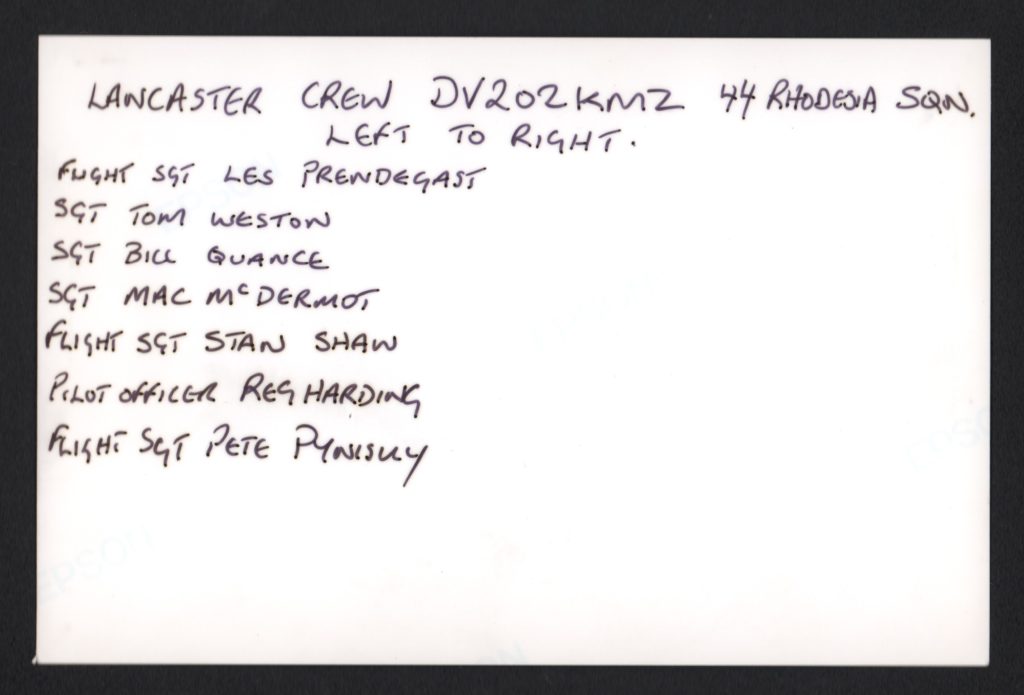 LANCASTER CREW DV202KMZ 44 RHODESIA SQN.
LEFT TO RIGHT.
FLIGHT SGT LES PRENDEGAST
SGT TOM WESTON
SGT BILL QUANCE
SGT MAC McDERMOT
FLIGHT SGT STAN SHAW
PILOT OFFICER REG HARDING
FLIGHT SGT PETE
EPSON